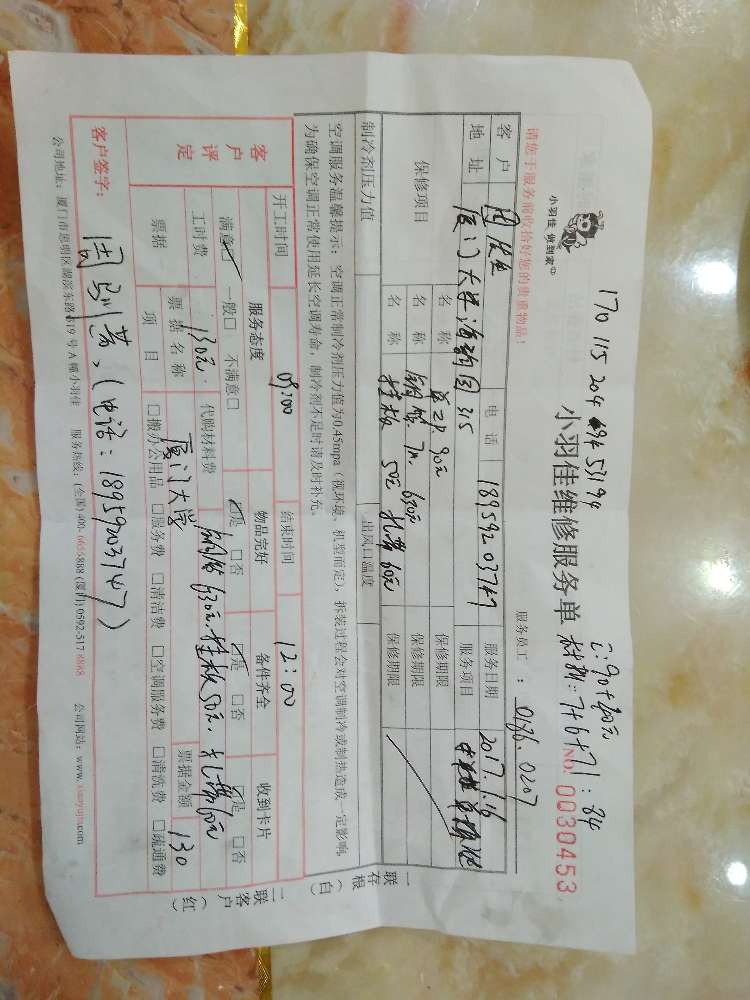 170 115 204 694 53194
工:90+40元
材料:7+6+71:84
小羽佳 做到家
小羽佳维修服务单
NO. 0030453
请您于服务前收拾好您的贵重物品!
服务员工: 0186.0207
客户 电话 18959203747 服务日期 2017.1.16
地址 厦门大学海韵园315 服务项目
保修项目 名称 90元 保修期限
名称 铜管 7m 630元 保修期限
名称 挂板 50元 孔费 60元 保修期限
制冷剂压力值 出风口温度
空调服务温馨提示:空调正常制冷剂压力值为0.45mpa(视环境、机型而定),拆装过程会对空调制冷或制热造成一定影响,
为确保空调正常使用延长空调寿命,制冷剂不足时请及时补充。
一联存根(白)
二联客户(红)
开工时间 09:00 结束时间 12:00
客户评定
服务态度 物品完好 备件齐全 收到卡片
满意☑ 一般□ 不满意□ ☑是 □否 ☑是 □否 ☑是 □否
工时费 130元. 代购材料费 铜管630元.挂板50元.孔费60元
票据 票据名称 厦门大学 票据金额 130
项目 □搬办公用品 □服务费 □清洁费 □空调服务费 □清洗费 □疏通费
客户签字: (电话:18959203747)
公司地址:厦门市思明区湖滨东路319号A幢小羽佳 服务热线:(全国)400-6655888 (厦门)0592-5178888 公司网站:www.xiaoyujia.com